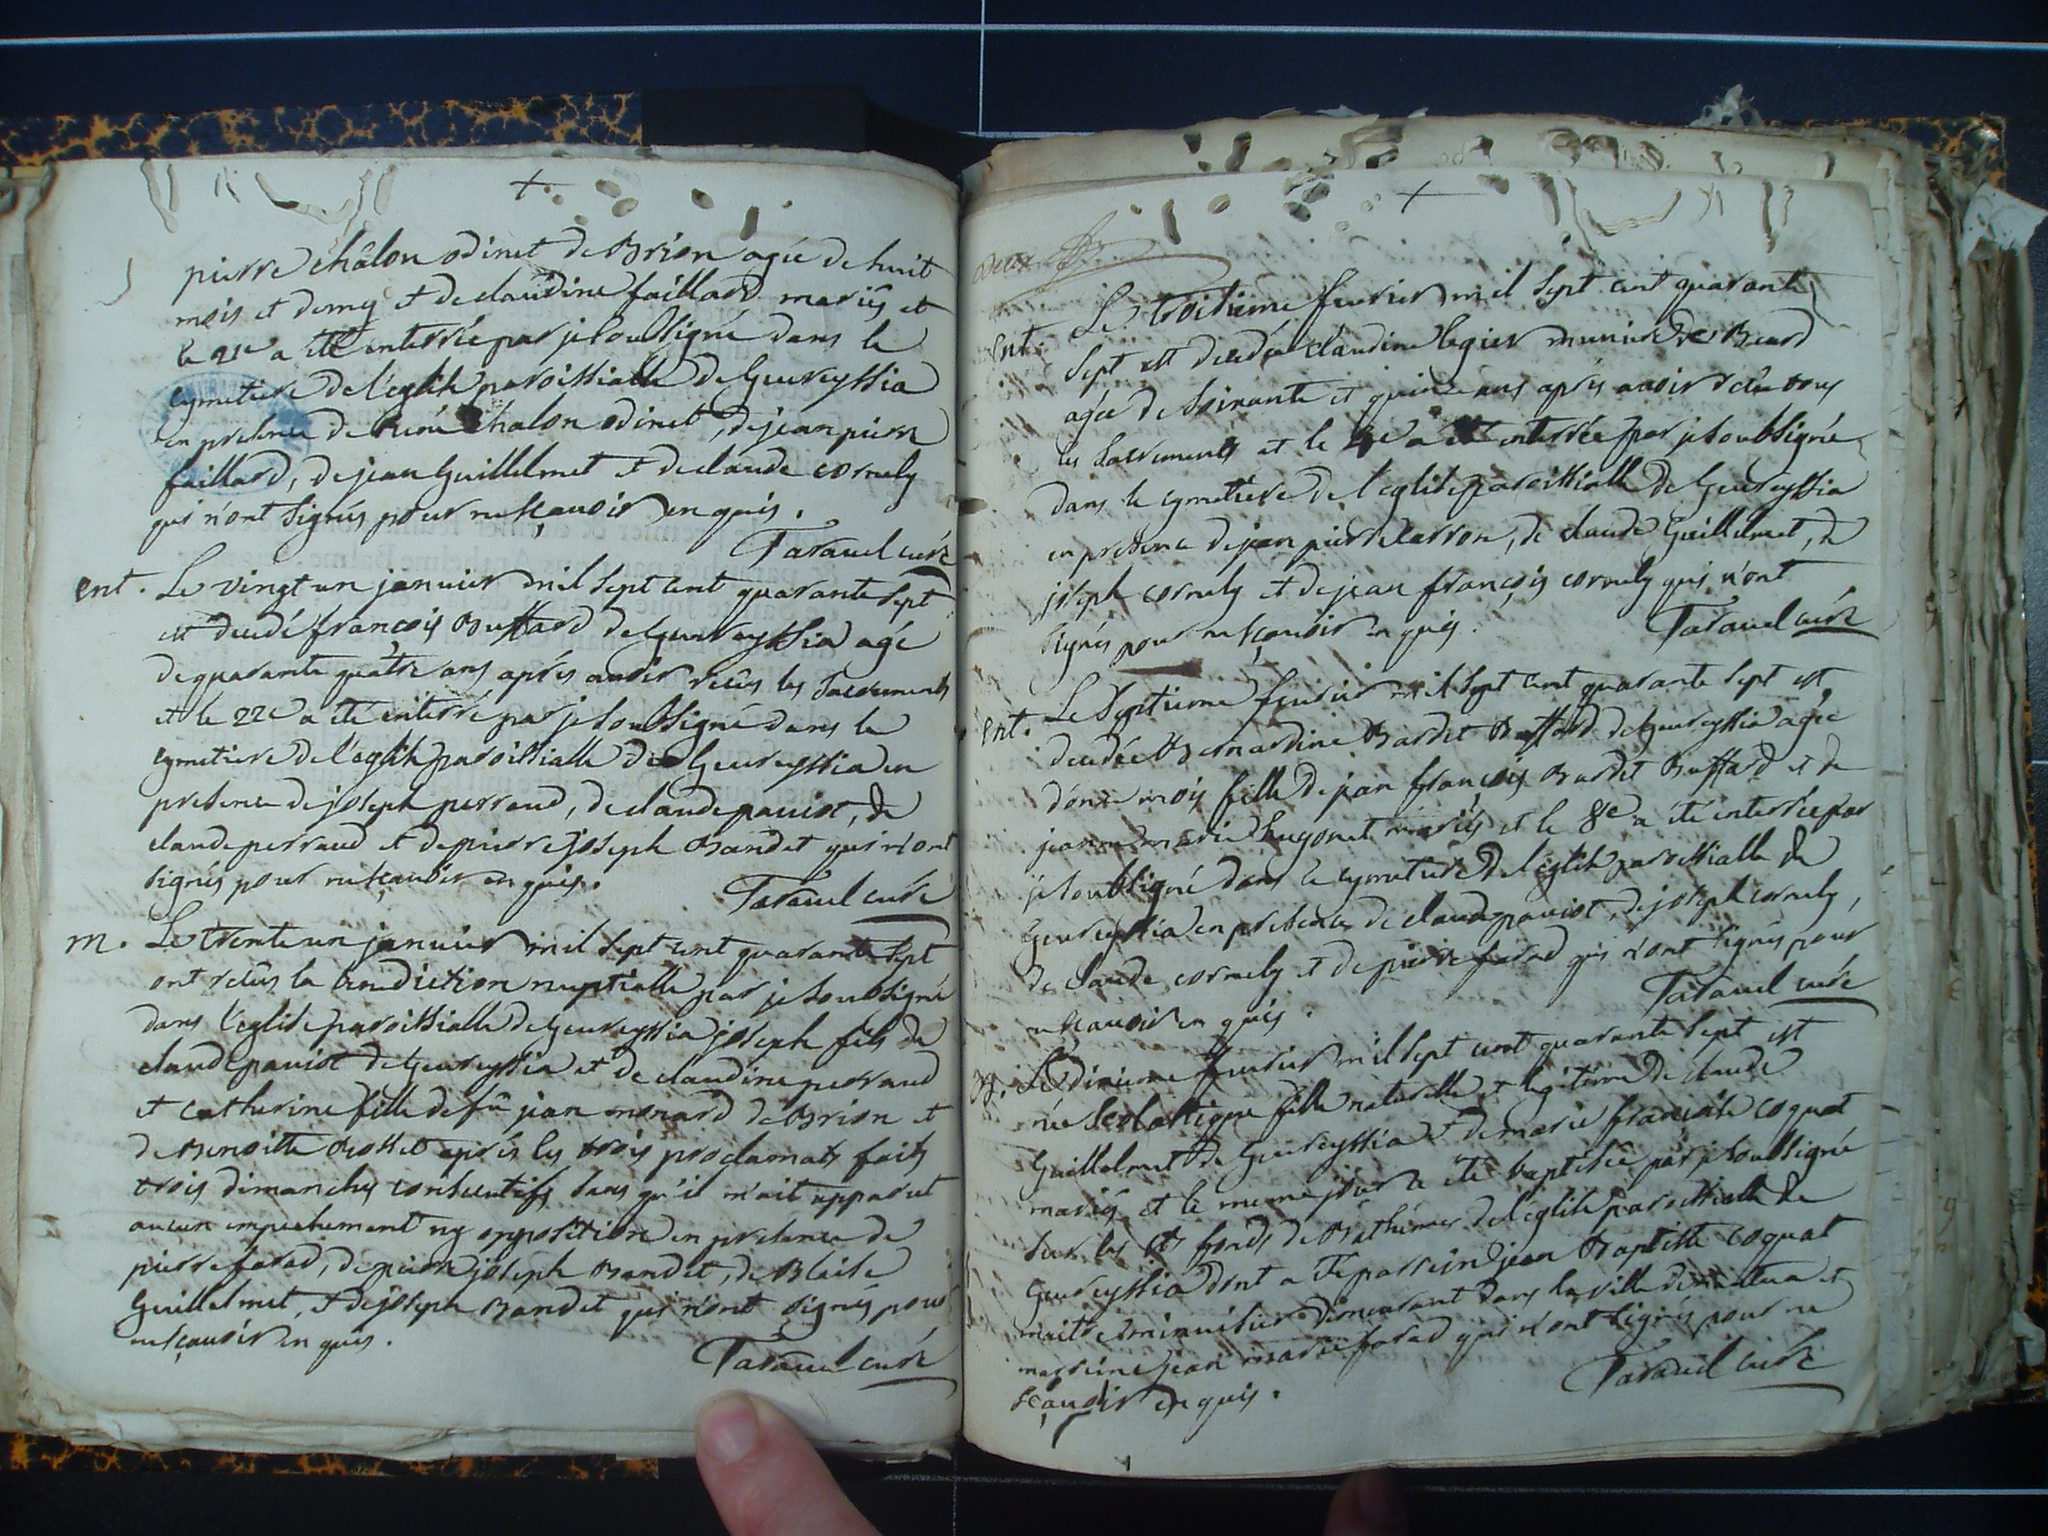 pierre châlon odinet de Brion agée de huit
mois et demy et de claudine faillard mariés et
le 21e a été enterrée par je soubsigné dans le
cymetiere de l'eglise paroissialle de Geureyssia
en presence de chalon odinet, de jean pierre
faillard, de jean Guillelmet et de claude cornely
qui n'ont signés pour ne sçavoir en quis.
Taravel curé
ent. Le vingt un janvier mil sept cent quarante sept
est decedé françois Buffard de Geureyssia agé
de quarante quatre ans après avoir reçûs les sacrements
et le 22e a été enterré par je soubsigné dans le
cymetiere de l'eglise paroissialle de Geureyssia en
presence de joseph perraud, de claude paviot, de
claude perraud et de pierre joseph Bandet qui n'ont
signés pour ne sçavoir en quis.
Taravel curé
m. Le trente un janvier mil sept cent quarante sept
ont reçûs la benediction nuptialle par je soubsigné
dans l'eglise paroissialle de Geureyssia joseph fils de
claude paviot de Geureyssia et de claudine perraud
et catherine fille de fû jean monard de Brion et
de Benoitte Rosset après les trois proclamats faits
trois dimanches consecutifs sans qu'il n'ait apparut
aucun empechement ny opposition en presence de
pierre farad, de pierre joseph Bandet, de Blaise
Guillelmet, et de joseph Bandet qui n'ont signés pour
ne sçavoir en quis.
Taravel curé
deux
ent. Le troisieme fevrier mil sept cent quarante
sept est decedée claudine legier muniere de Beard
agée de soixante et quinze ans après avoir reçûe tous
les sacrements et le 4e a été enterrée par je soubsigné
dans le cymetiere de l'eglise paroissialle de Geureyssia
en presence de jean pierre carron, de claude Guillelmet, de
joseph cornely et de jean françois cornely qui n'ont
signés pour ne sçavoir en quis.
Taravel curé
ent. Le septieme fevrier mil sept cent quarante sept est
decedée Bernardine Bardet Buffard de Geureyssia agée
d'onze mois fille de jean françois Bardet Buffard et de
jeanne marie hugonet mariés et le 8e a été enterrée par
je soubsigné dans le cymetiere de l'eglise paroissialle de
Geureyssia en presence de claude paviot, de joseph cornely,
de claude cornely et de pierre farad qui n'ont signés pour
ne scavoir en quis.
Taravel curé
B. Le dixieme fevrier mil sept cent quarante sept est
née scolastique fille naturelle et legitime de claude
Guillelmet de Geureyssia et de marie francoise coquat
mariés et le meme jour a été baptisée par je soubsigné
sur les sts fonds de Bathême de l'eglise paroissialle de
Geureyssia dont a été parrein jean Baptiste coquat
maitre minuisier demeurant dans la ville de nantua et
marreine jean marie farad qui n'ont signés pour ne
sçavoir en quis.
Taravel curé